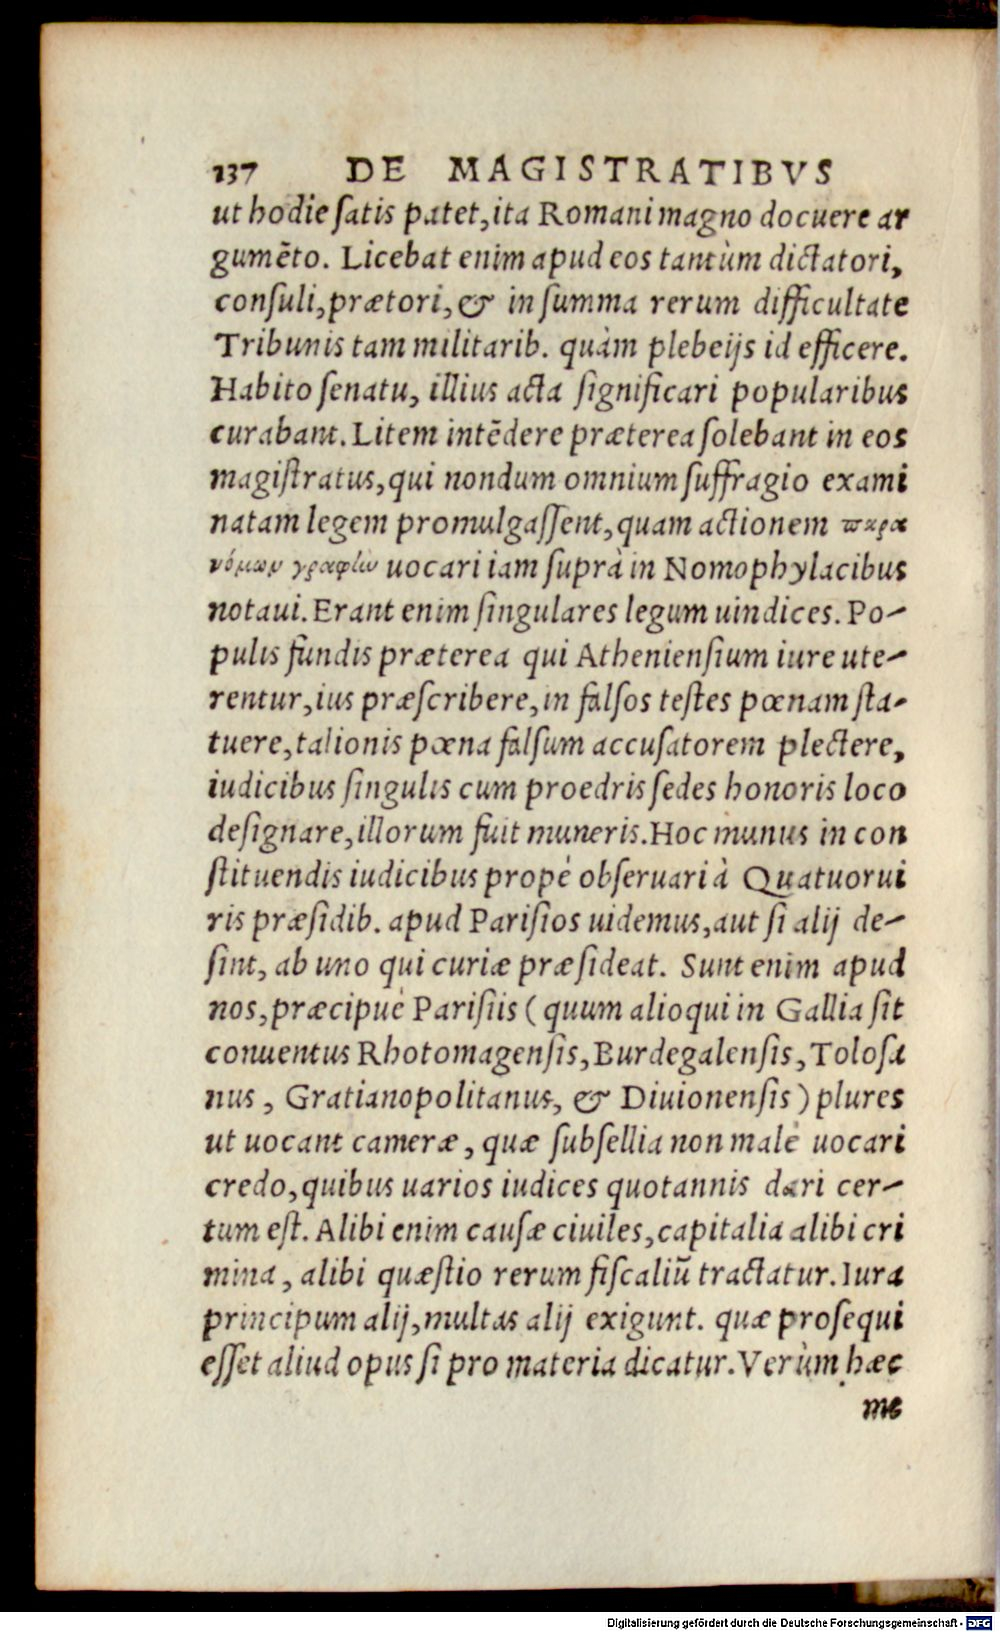 137 DE MAGISTRATIBVS
ut hodie ſatis patet, ita Romani magno docuere ar
gumēto. Licebat enim apud eos tantùm dictatori,
conſuli, prætori, & in ſumma rerum difficultate
Tribunis tam militarib. quàm plebeijs id efficere.
Habito ſenatu, illius acta ſignificari popularibus
curabant. Litem intēdere præterea ſolebant in eos
magiſtratus, qui nondum omnium ſuffragio exami
natam legem promulgaſſent, quam actionem παρα
νόμων γραφὶω uocari iam ſuprà in Nomophylacibus
notaui. Erant enim ſingulares legum uindices. Po-
pulis fundis præterea qui Athenienſium iure ute-
rentur, ius præſcribere, in falſos teſtes pœnam ſta-
tuere, talionis pœna falſum accuſatorem plectere,
iudicibus ſingulis cum proedris ſedes honoris loco
deſignare, illorum fuit muneris. Hoc munus in con
ſtituendis iudicibus propè obſeruari à Quatuorui
ris præſidib. apud Pariſios uidemus, aut ſi alij de-
ſint, ab uno qui curiæ præſideat. Sunt enim apud
nos, præcipuè Pariſiis ( quum alioqui in Gallia ſit
conuentus Rhotomagenſis, Burdegalenſis, Toloſa
nus, Gratianopolitanus, & Diuionenſis ) plures
ut uocant cameræ, quæ ſubſellia non malè uocari
credo, quibus uarios iudices quotannis dari cer-
tum eſt. Alibi enim cauſæ ciuiles, capitalia alibi cri
mina, alibi quæſtio rerum fiſcaliū tractatur. Iura
principum alij, multas alij exigunt. quæ proſequi
eſſet aliud opus ſi pro materia dicatur. Verùm hæc
me
Digitalisierung gefördert durch die Deutsche Forschungsgemeinschaft - DFG